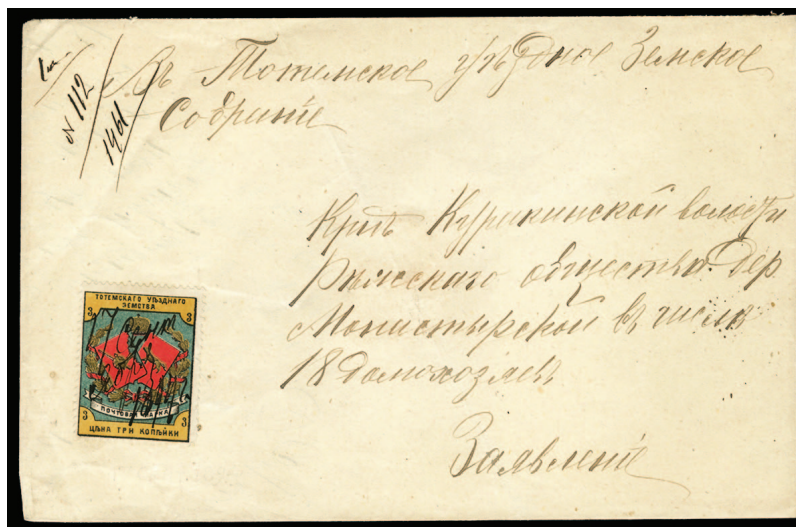 Въ Тотемское уѣздное Земское
Собраніе
№ 112
1961
Крпъ Курикинской волости
общества дер
Монастырской въ числѣ
18 домохозяевъ
Заявленіе
ТОТЕМСКАГО УѢЗДНАГО
ЗЕМСТВА
3 3
ПОЧТОВАЯ МАРКА
3 3
ЦѢНА ТРИ КОПѢЙКИ